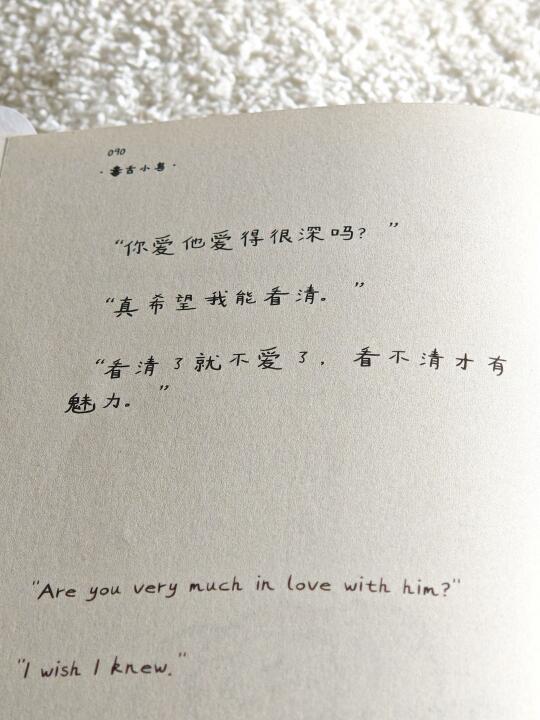 090
·毒舌小鸟·
“你爱他爱得很深吗？”
“真希望我能看清。”
“看清了就不爱了，看不清才有
魅力。”
"Are you very much in love with him?"
"I wish I knew."